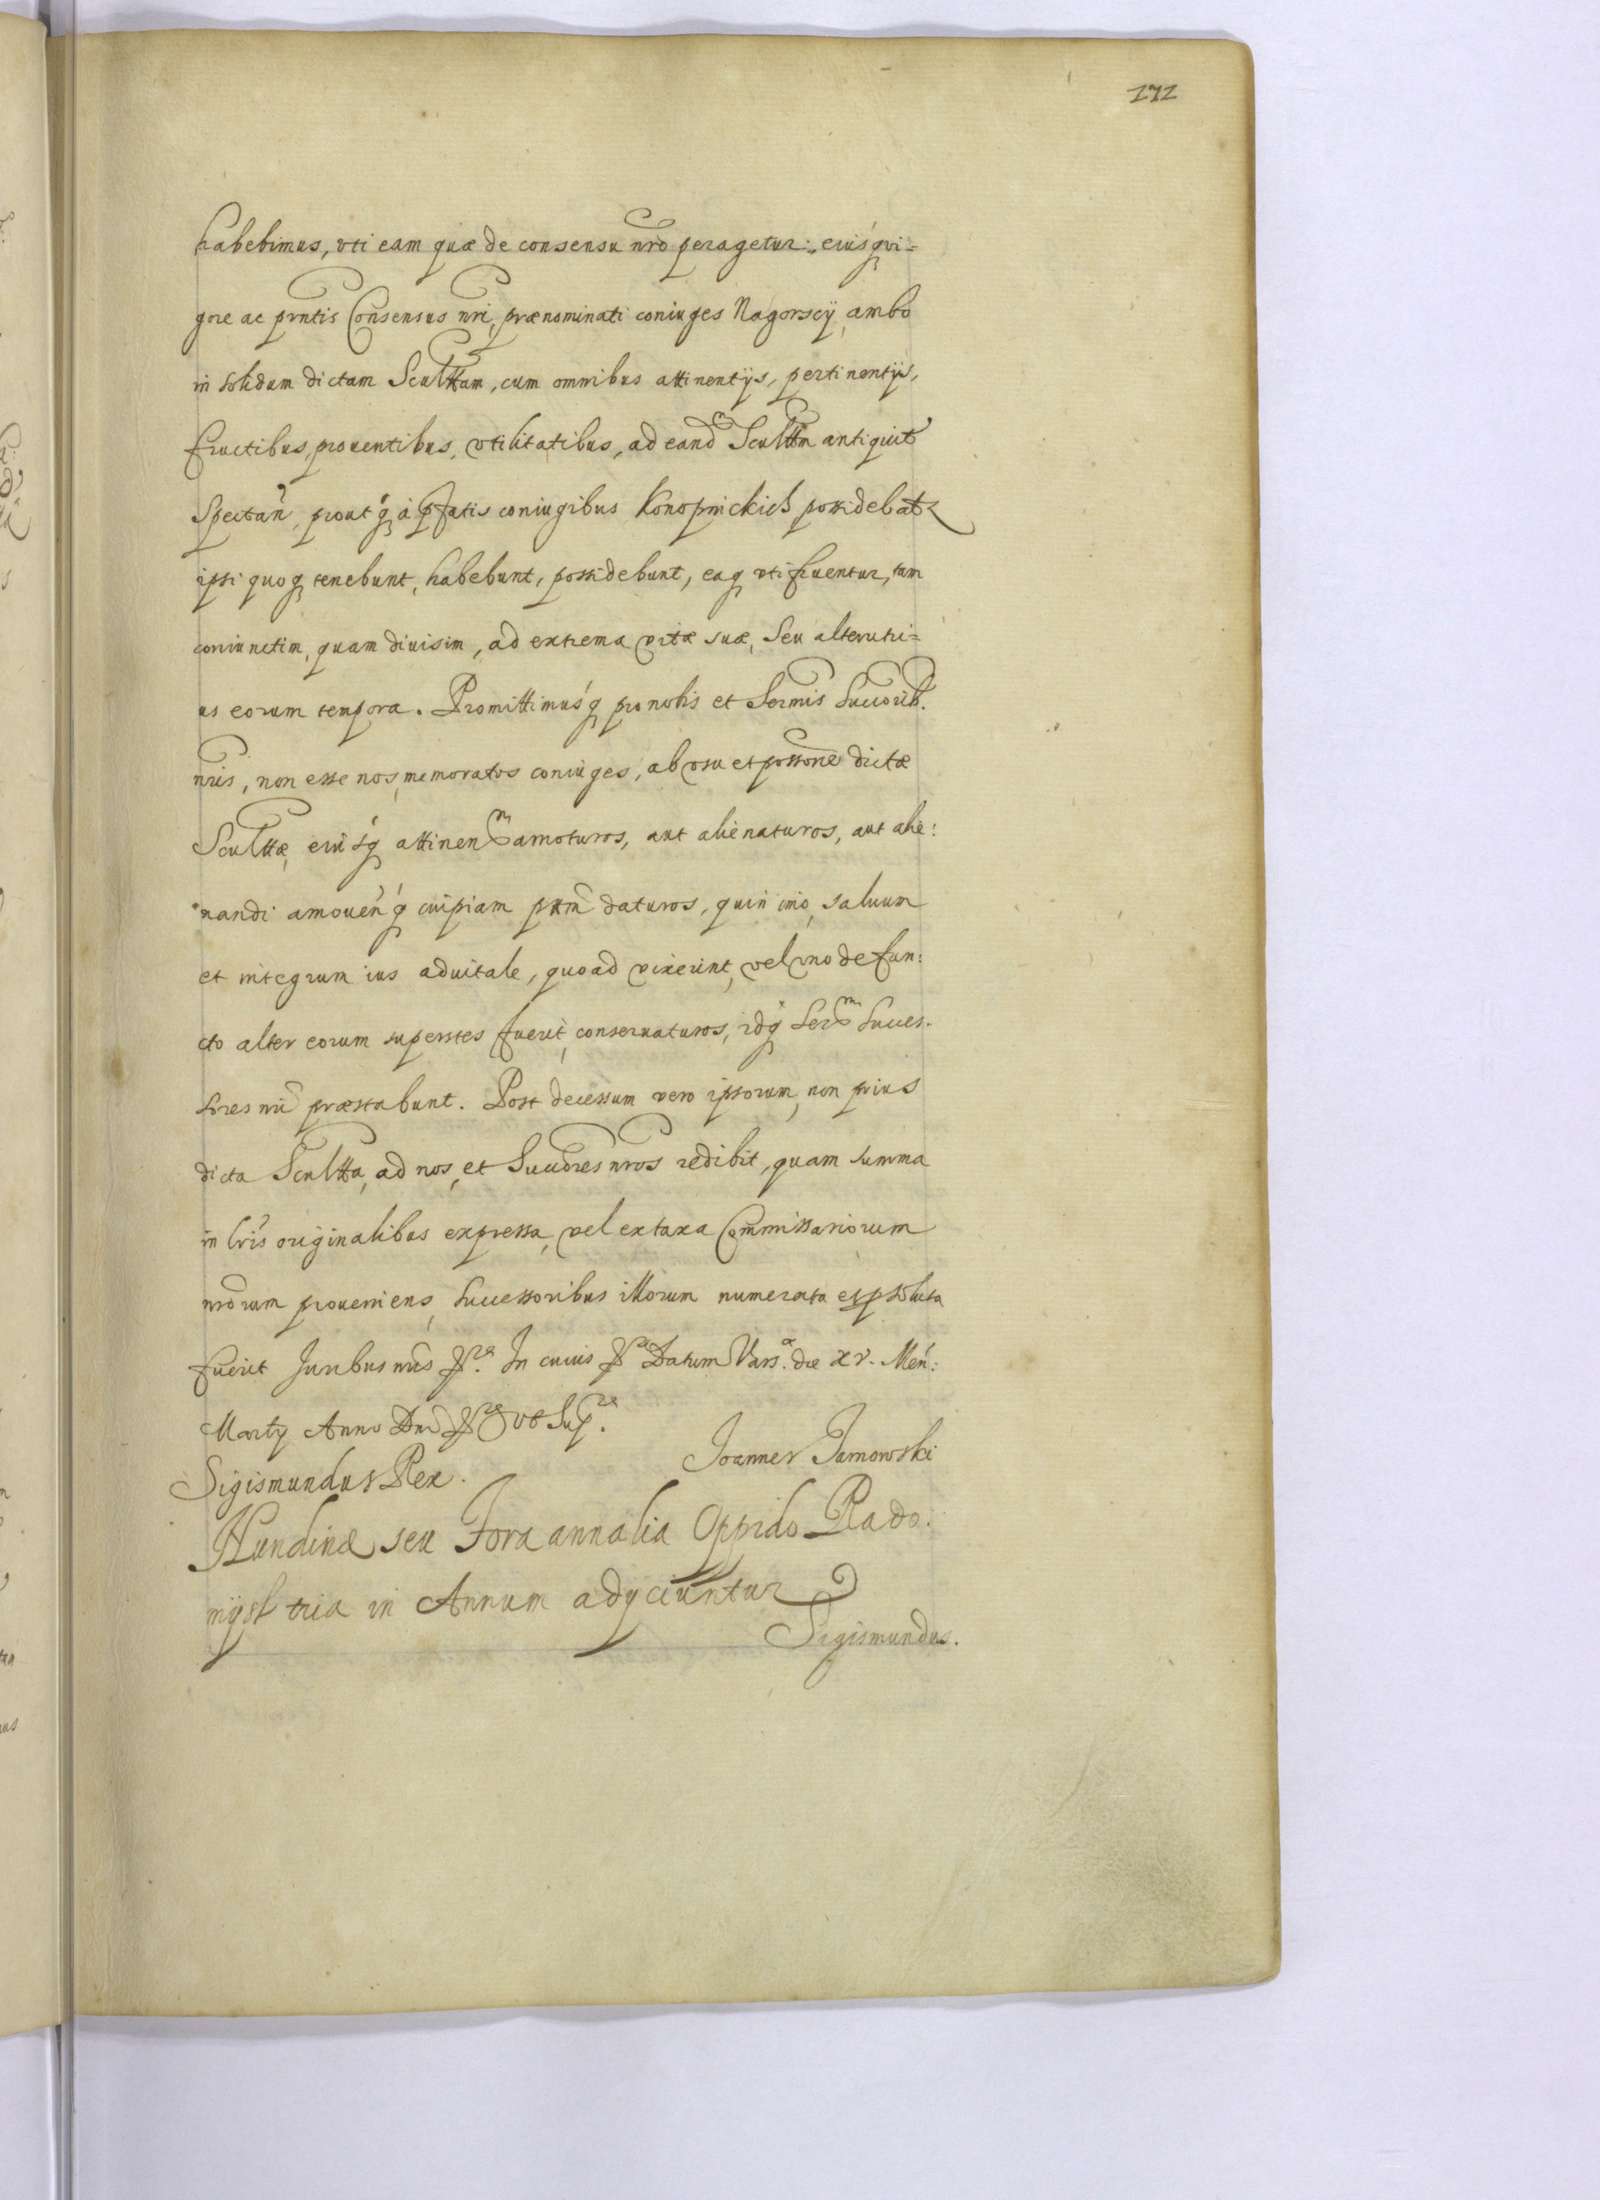 171
habebimus, vti eam quæ de consensu nrõ peragetur: eiusq; vi=
gore ac pñtis Consensus nri, prænominati coniuges Nagorscÿ, ambo
in solidum dictam Scultttam, cum omnibus attinentÿs, pertinentÿs,
fructibus, prouentibus, vtilitatibus, ad eand Sculttm antiquit
Spectan, prout q; à pfatis coniugibus Konopnickich possidebatr
ipsi quoq; tenebunt, habebunt, possidebunt, eaq; vti fruentur, tam
coniunctim, quam diuisim, ad extrema vitæ suæ, seu alterutri=
us eorum tempora. Promittimusq; pro nobis et Sermis Succorib.
nris, non esse nos, memoratos coniuges, ab vsu et possone dictæ
Sculttæ, eiusq; attinen amoturos, aut alienaturos, aut alie:
nandi amouen q; cuipiam pttm daturos, quin imo, saluum
et integrum ius aduitale, quoad vixerint, vel vno defun:
cto alter eorum superstes fuerit, conseruaturos, idq; Ser^m Succes.
sores nri præstabunt. Post decessum vero ipsorum, non prius
dicta Scultta, ad nos, et Succores nros redibit, quam summa
in lris originalibus expressa, vel ex taxa Commissariorum
nrorum proueniens, successoribus illorum numerata et psoluta
fuerit Juribus nris In cuius Datum Vars. die XV. Men:
Martÿ Anno Dni vt Sup.
Joannes Tarnowski
Sigismundus Rex.
Nundinæ seu Fora annalia Oppido Rado:
mÿsl tria in Annum adÿciuntur
Sigismundus.